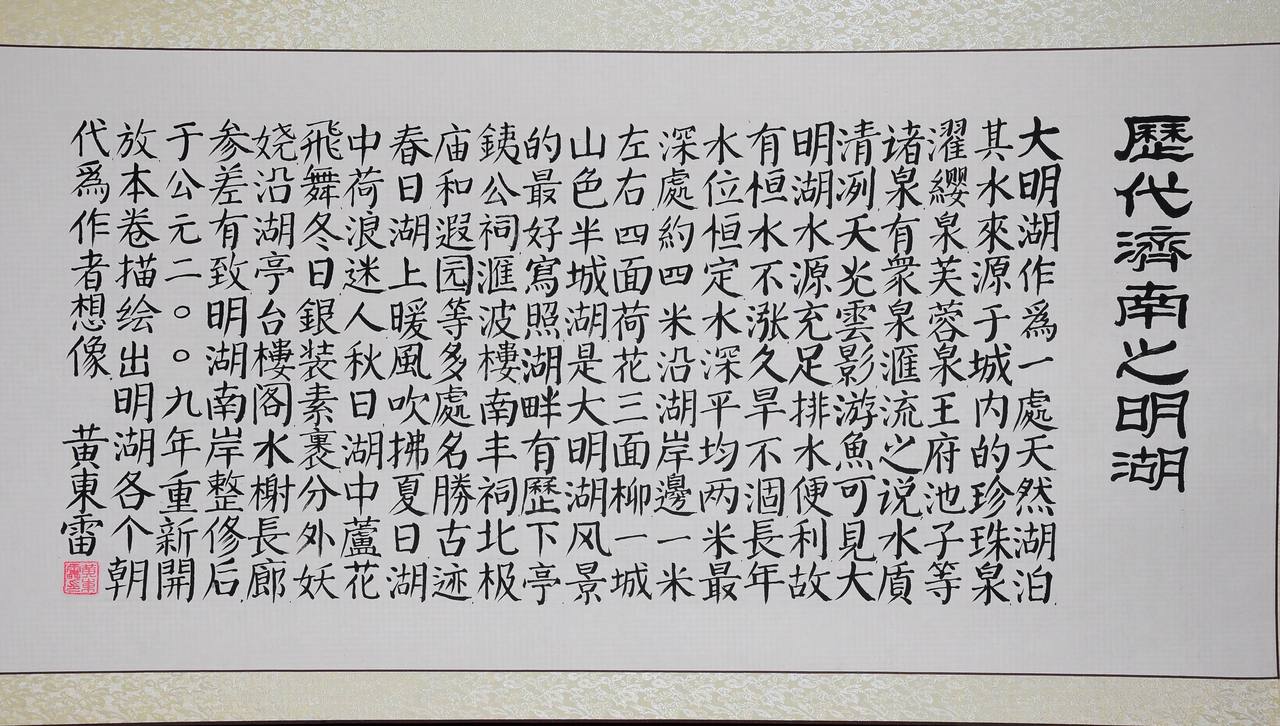 歷代濟南之明湖
大明湖作爲一處天然湖泊
其水來源于城内的珍珠泉
濯纓泉芙蓉泉王府池子等
诸泉有衆泉滙流之说水質
清冽天光雲影游魚可見大
明湖水源充足排水便利故
有恒水不涨久旱不涸長年
水位恒定水深平均两米最
深處約四米沿湖岸邊一米
左右四面荷花三面柳一城
山色半城湖是大明湖风景
的最好寫照湖畔有歷下亭
銕公祠滙波樓南丰祠北极
庙和遐园等多處名勝古迹
春日湖上暖風吹拂夏日湖
中荷浪迷人秋日湖中蘆花
飛舞冬日銀装素裹分外妖
娆沿湖亭台樓阁水榭長廊
参差有致明湖南岸整修后
于公元二〇〇九年重新開
放本卷描绘出明湖各个朝
代爲作者想像 黄東雷
黄東雷印